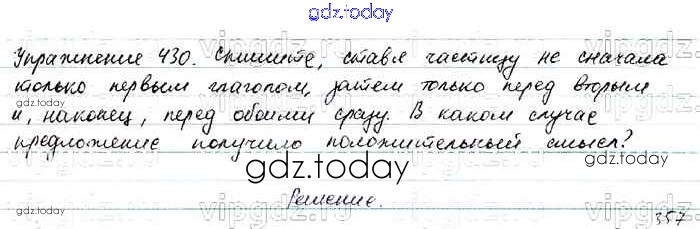 gdz.today
Упражнение 430. Спишите, ставя частицу не сначала
только первым глаголом, затем только перед вторым
и, наконец, перед обоими сразу. В каком случае
предложение получило положительный смысл?
gdz.today
Решение.
357